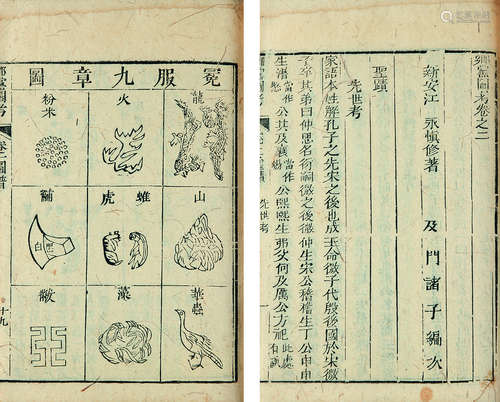 鄉黨圖考卷之二
新安江永慎修著
及門諸子編次
聖蹟
先世考
家語本姓解孔子之先宋之後也成王命微子代殷後國於宋微
子卒其弟曰仲思名衍嗣微之後微仲生宋公稽稽生丁公申申
生湣公其及襄當作公熙熙生弗父何及厲公方祀
先世考
冕服九章圖
龍
火
粉米
山
蜼虎
黼
白
黑
華蟲
藻
黻
鄉黨圖考
卷一圖譜
十九